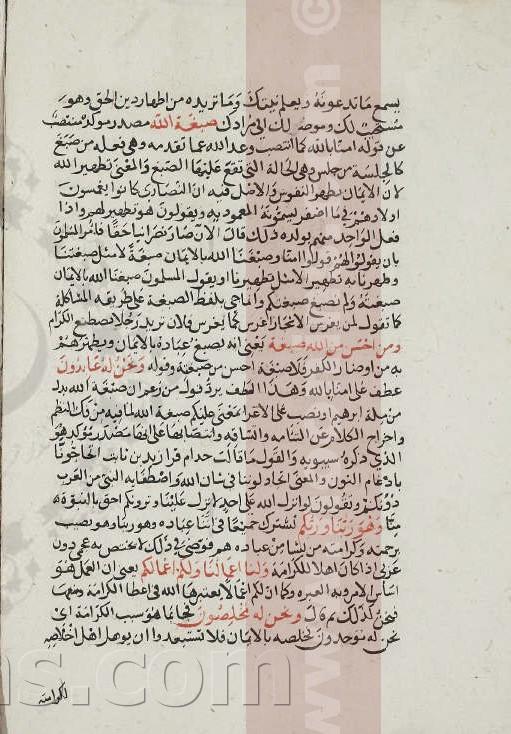 يسمع ما تدعون به ويعلم نيتك وما تريده من اظهار دين الحق وهو
مستجيب لك وموصلك الى مرادك صبغة الله مصدر موكد منتصب
عن قوله امنا بالله كما انتصب وعد الله عما تقدمه وهي فعلة من صبغ
كالجلسة من جلس وهي الحالة التي تقع عليها الصبغ والمعنى تطهير الله
لان الايمان يطهر النفوس والاصل فيه ان النصارى كانوا يغمسون
اولادهم في ماء اصفر يسمونه المعمودية ويقولون هو تطهير لهم واذا
فعل الواحد منهم بولده ذلك قال الان صار نصرانيا حقا فامر المسلمون
بان يقولوا لهم قولوا امنا وصبغنا الله بالايمان صبغة لا مثل صبغتنا
وطهرنا به تطهيرا لا مثل تطهيرنا او يقول المسلمون صبغنا الله بالايمان
صبغته ولم نصبغ صبغتكم وانما جي بلفظ الصبغة على طريقه المشاكلة
كما تقول لمن يغرس الاشجار اغرس كما يغرس فلان تريد رجلا يصطنع الكرام
ومن احسن من الله صبغة يعنى انه يصبغ عباده بالايمان ويطهرهم
به من اوضار الكفر فلا صبغة احسن من صبغته وقوله ونحن له عابدون
عطف على امنا بالله وهذا العطف يرد قول من زعم ان صبغة الله بدل
من ملة ابرهيم او نصب على الاغراء بمعنى عليكم صبغة الله لما فيه من فك النظم
واخراج الكلام عن التئامه واتساقه وانتصابها على انها مصدر موكد هو
الذي ذكره سيبويه والقول ما قالت حذام قرا زيد بن ثابت اتحاجونا
بادغام النون والمعنى اتجادلوننا في شان الله واصطفايه النبي من العرب
دونكم وتقولون لو انزل الله على احد لانزل علينا وترونكم احق بالنبوة
منا وهو ربنا وربكم نشترك جميعا في اننا عباده وهو ربنا وهو يصيب
برحمته وكرامته من يشا من عباده هم فوضى في ذلك لا يختص به عجمي دون
عربي اذا كان اهلا للكرامة ولنا اعمالنا ولكم اعمالكم يعنى ان العمل هو
اساس الامر وبه العبرة وكما ان لكم اعمالا يعتبرها الله في اعطا الكرامة ومنعها
فنحن كذلك ثم قال ونحن له مخلصون فجا بما هو سبب الكرامة اي
نحن له موحدون نخلصه بالايمان فلا تستبعدوا ان يوهل اهل اخلاصه
لكرامته
ns.com
www
©